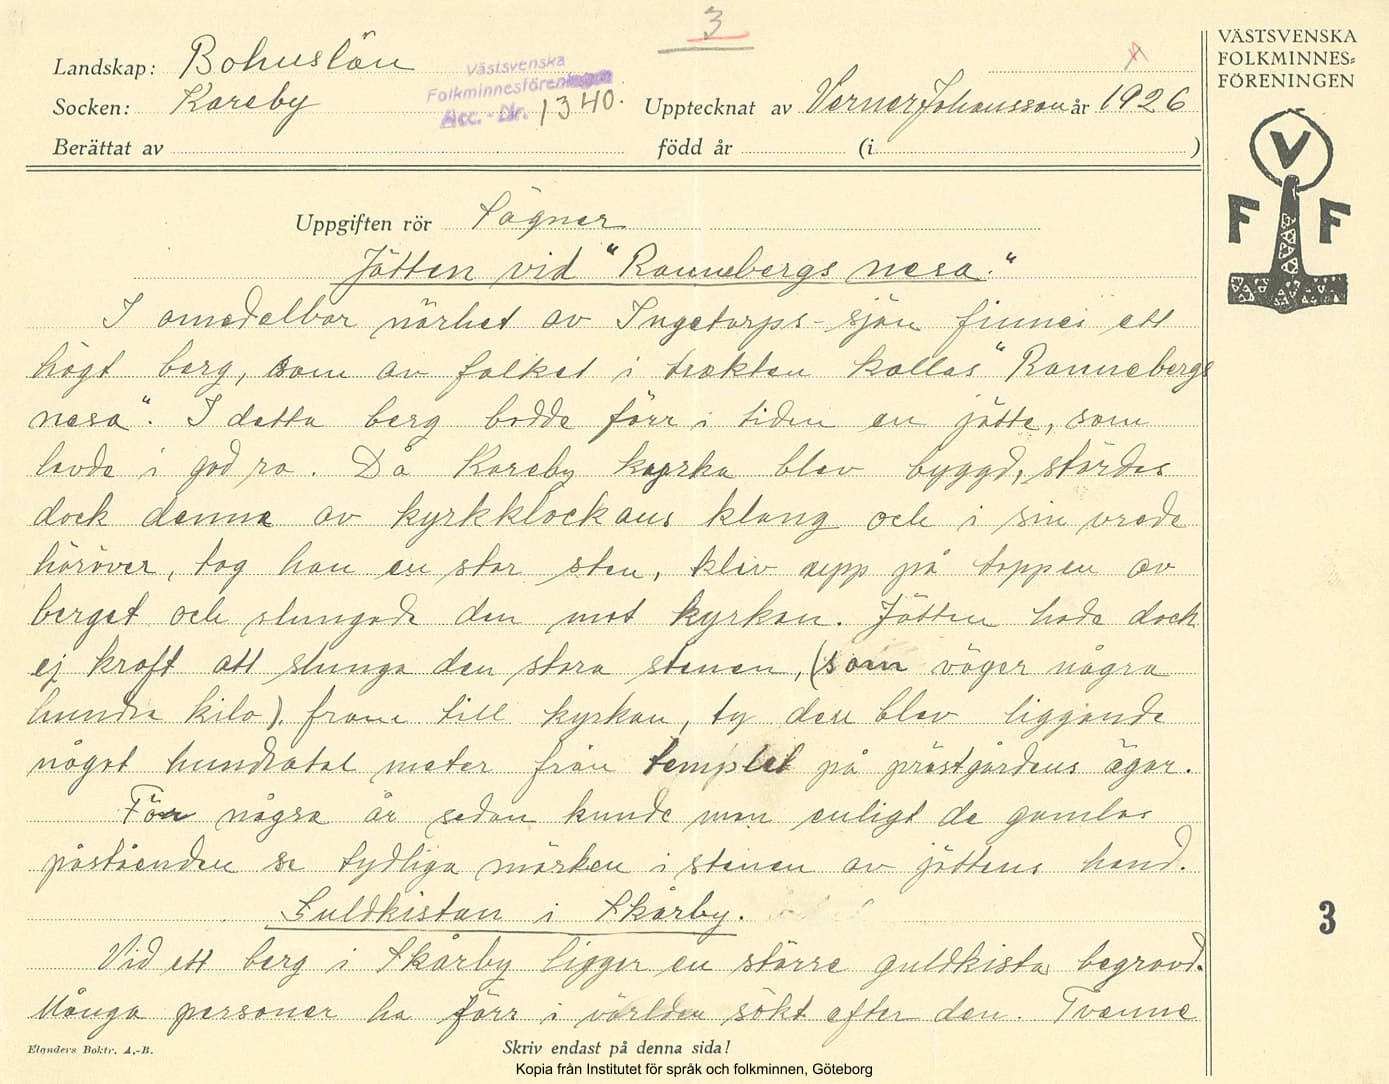 3
Landskap: Bohuslän
Västsvenska
Folkminnesföreningen
Acc.-Nr. 1340.
Socken: Kareby
Upptecknat av Verner Johansson år 1926
Berättat av född år (i )
VÄSTSVENSKA
FOLKMINNES=
FÖRENINGEN
V
F F
Uppgiften rör Sägner
Jätten vid "Rannebergs nesa."
I omedelbar närhet av Ingetorps-sjön finnes ett
högt berg, som av folket i trakten kallas "Rannebergs
nesa". I detta berg bodde förr i tiden en jätte, som
levde i god ro. Då Kareby kyrka blev byggd, stördes
dock denne av kyrkklockans klang och i sin vrede
häröver, tog han en stor sten, klev upp på toppen av
berget och slungade den mot kyrkan. Jätten hade dock
ej kraft att slunga den stora stenen, (som väger några
hundra kilo) fram till kyrkan, ty den blev liggande
något hundratal meter från templet på prästgårdens ägor.
För några år sedan kunde man enligt de gamlas
påståenden se tydliga märken i stenen av jättens hand.
Guldkistan i Skårby.
Vid ett berg i Skårby ligger en större guldkista begravd.
Många personer ha förr i världen sökt efter den. Tvenne
3
Elanders Boktr. A.-B.
Skriv endast på denna sida!
Kopia från Institutet för språk och folkminnen, Göteborg